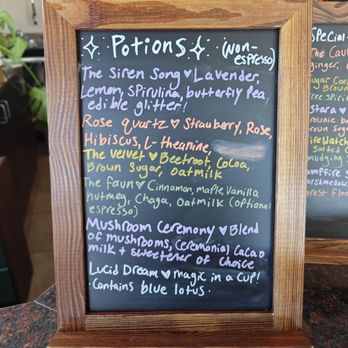 ✧ Potions ✧ (non-
espresso)
The Siren Song ♥ Lavender,
Lemon, Spirulina, butterfly Pea,
edible glitter!
Rose quartz ♥ Strawberry, Rose,
Hibiscus, L-theanine,
The Velvet ♥ Beetroot, Cocoa,
Brown Sugar, oatmilk
The Faun ♥ Cinnamon, maple, Vanilla
nutmeg, Chaga, Oatmilk (optional
espresso)
Mushroom Ceremony ♥ Blend
of mushrooms, Ceremonial Cacao
milk + sweetener of choice
Lucid Dream ♥ magic in a cup!
· Contains blue lotus ·
Special
The Caul
ginger,
Sugar Coo
Brown
free Spiri
Stara ♥
Brownie b
Brown Sug
Fire Watch
Salted C
mudging
Campfire S
marshmello